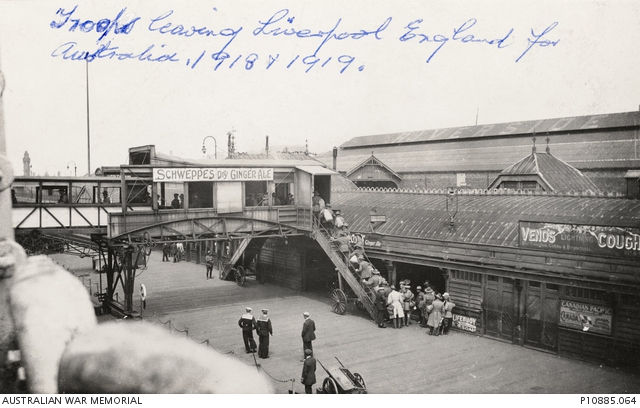 Troops leaving Liverpool England for
Australia. 1918 & 1919.
SCHWEPPES DRY GINGER ALE
Ginger Ale
VENOS LIGHTNING COUGH
CANADIAN PACIFIC
CANADA
LIFEBUOY
AUSTRALIAN WAR MEMORIAL
P10885.064